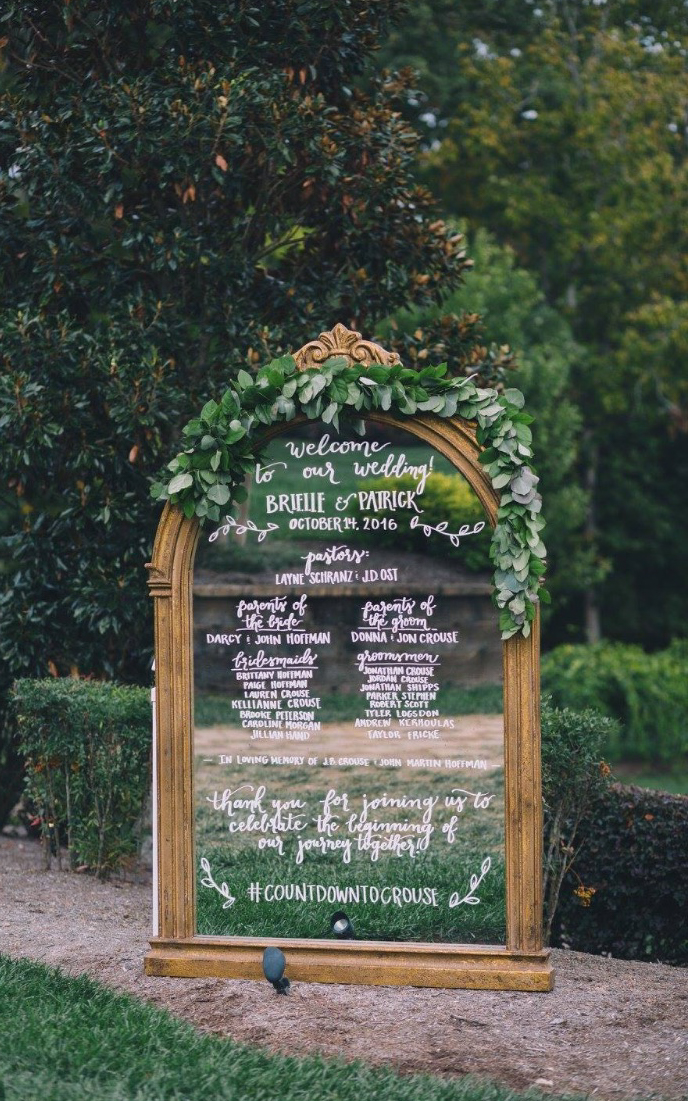 welcome
to our wedding!
BRIELLE & PATRICK
OCTOBER 14, 2016
pastors:
LAYNE SCHRANZ & J.D. OST
parents of
the bride
DARCY & JOHN HOFFMAN
parents of
the groom
DONNA & JON CROUSE
bridesmaids
BRITTANY HOFFMAN
PAIGE HOFFMAN
LAUREN CROUSE
KELLIANNE CROUSE
BROOKE PETERSON
CAROLINE MORGAN
JILLIAN HAND
groomsmen
JONATHAN CROUSE
JORDAN CROUSE
JONATHAN SHIPPS
PARKER STEPHEN
ROBERT SCOTT
TYLER LOGSDON
ANDREW KERHOULAS
TAYLOR FRICKE
— IN LOVING MEMORY OF J.B. CROUSE & JOHN MARTIN HOFFMAN —
thank you for joining us to
celebrate the beginning of
our journey together!
#COUNTDOWNTOCROUSE